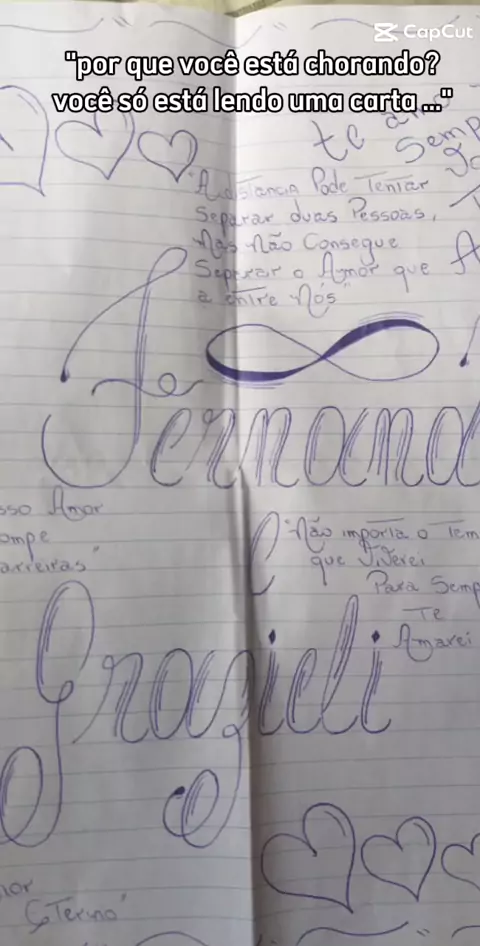 CapCut
"por que você está chorando?
você só está lendo uma carta ..."
te amo
Semp
"A distancia Pode Tentar
Separar duas Pessoas,
Mas Não Consegue
Separar o Amor que
a entre Nós"
Fernand
sso Amor
ompe
arreiras"
e
"Não importa o Tem
que Viverei
Para Semp
Te
Amarei
Grazieli
mor
Eterno"